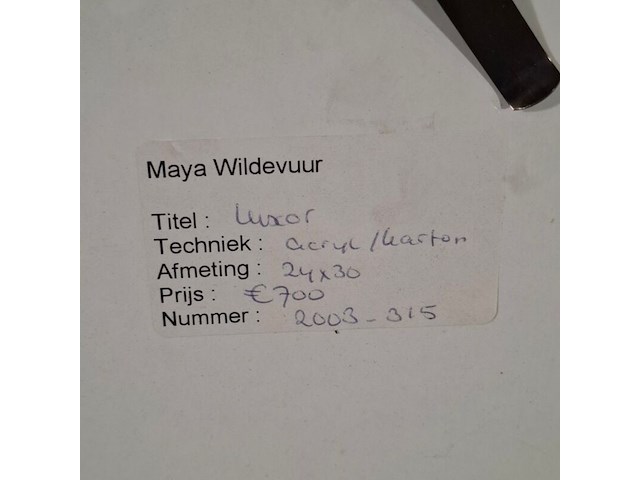 Maya Wildevuur
Titel : Luxor
Techniek : acryl/karton
Afmeting : 24x30
Prijs : €700
Nummer : 2003-315